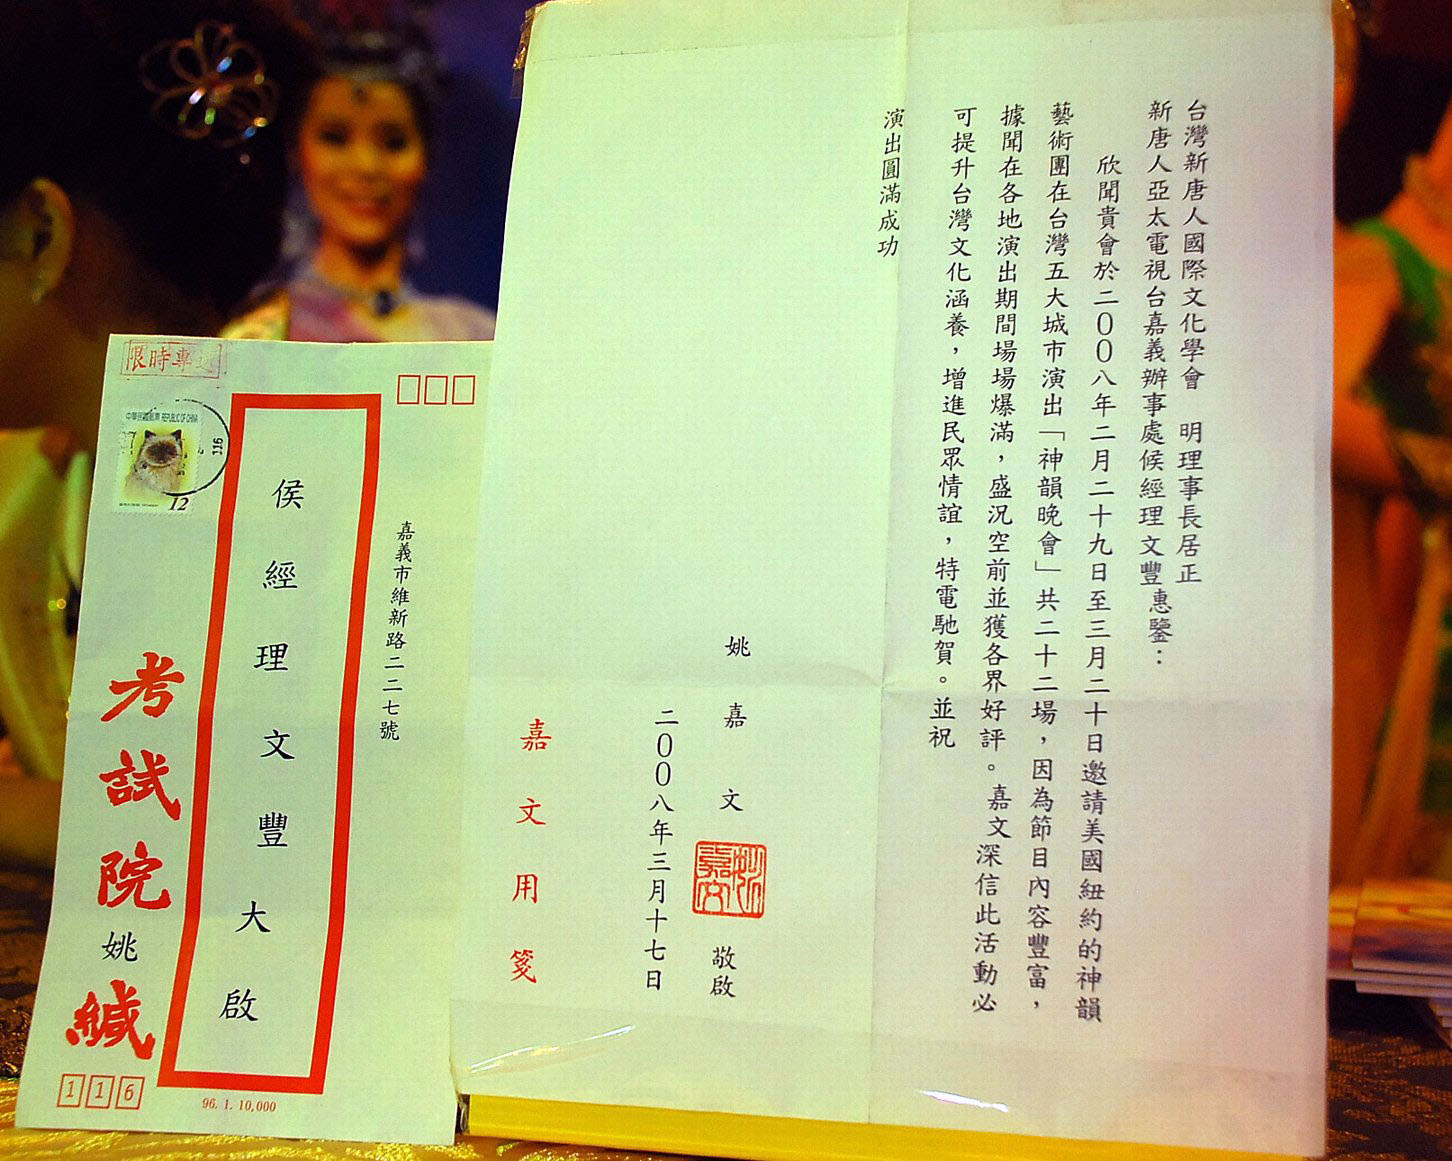 台灣新唐人國際文化學會　明理事長居正
新唐人亞太電視台嘉義辦事處候經理文豐惠鑒：
欣聞貴會於二００八年二月二十九日至三月二十日邀請美國紐約的神韻
藝術團在台灣五大城市演出「神韻晚會」共二十二場，因為節目內容豐富，
據聞在各地演出期間場場爆滿，盛況空前並獲各界好評。嘉文深信此活動必
可提升台灣文化涵養，增進民眾情誼，特電馳賀。並祝
演出圓滿成功
姚嘉文
敬啟
二００八年三月十七日
嘉文用箋
嘉義市維新路二二七號
侯經理文豐大啟
限時專送
中華民國郵票 REPUBLIC OF CHINA
12
116
考試院姚緘
116
96. 1. 10,000